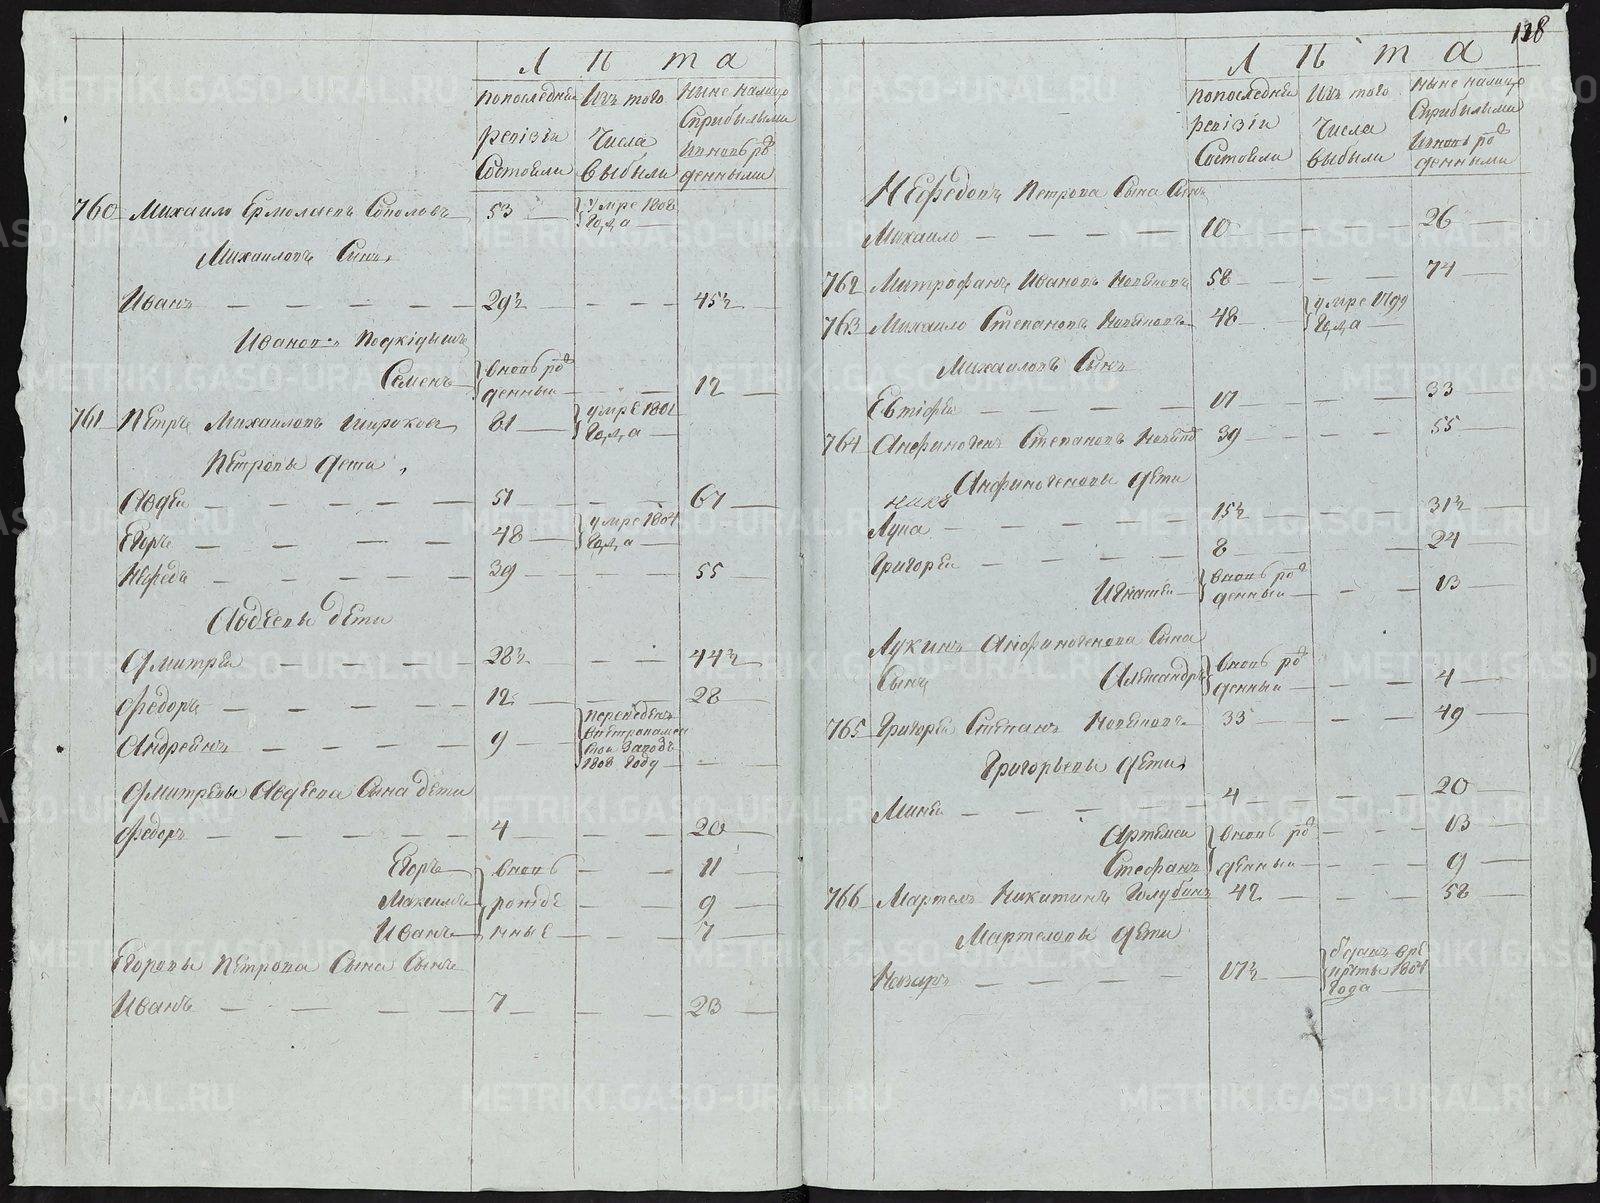 Лѣта
попоследней ревізіи Состояли
Изъ того Числа Выбыли
ныне налицо Сприбылыми ивновь рожденными
760 Михаило Ермолаевъ Соколовъ 53 умре 1808 Года
Михаиловъ Сынъ
Иванъ 29½ 45½
Ивановъ Подкідышъ
Семенъ вновь рожденный 12
761 Петръ Михаиловъ Широковъ 81 умре 1801 Года
Петровы дети
Авдеи 51 67
Егоръ 48 умре 1804 Года
Нефедъ 39 55
Авдеевы дети
Дмитреи 28½ 44½
Федоръ 12 28
Андреянъ 9 переведенъ заводъ 1808 Году
Дмитревы Авдеева Сына дети
Федоръ 4 20
Егоръ вновь 11
Максимъ рожде 9
Иванъ нные 7
Егоровы Петрова Сына Сынъ
Иванъ 7 23
118
Лѣта
попоследней ревізіи Состояли
Изъ того Числа выбыли
ныне налицо Сприбылыми ивновь рожденными
Нефедовъ Петрова Сына Сынъ
Михаило 10 26
762 Митрофанъ Ивановъ 58 74
763 Михаило Степановъ 48 умре 1799 Года
Михаиловъ Сынъ
Евтіфеи 17 33
764 Анфиногенъ Степановъ 39 55
Анфиногеновы дети
Лука 15½ 31½
Григореи 8 24
Игнатеи вновь рожденныи 13
Лукинъ Анфиногенова Сына
Сынъ Александръ вновь рожденныи 4
765 Григореи Степанъ 33 49
Григорьевы дети
Минеи 4 20
Артемеи вновь рож 13
Стефанъ денныи 9
766 Мартелъ Никитинъ Голубинъ 42 58
Мартеловы дети
Назаръ 17½ Года